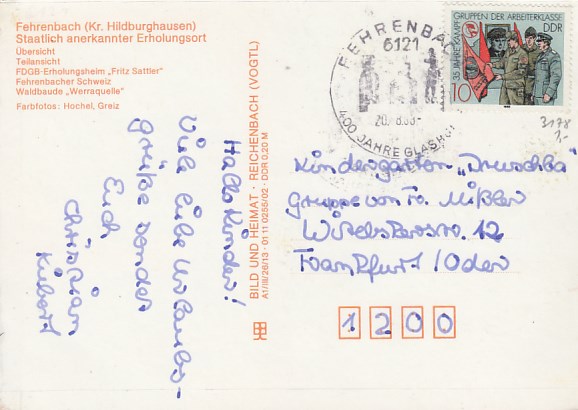 Fehrenbach (Kr. Hildburghausen)
Staatlich anerkannter Erholungsort
Übersicht
Teilansicht
FDGB-Erholungsheim „Fritz Sattler"
Fehrenbacher Schweiz
Waldbaude „Werraquelle"
Farbfotos: Hochel, Greiz
BILD UND HEIMAT · REICHENBACH (VOGTL)
A1/III/26/13 · 01 11 0255/02 · DDR 0,20 M
FEHRENBACH
6121
400 JAHRE
35 JAHRE KAMPFGRUPPEN DER ARBEITERKLASSE
DDR
10
3178
1,-
Hallo Kinder!
Viele liebe Urlaubs-
grüße sendet
Euch
Christian
Kindergarten „Druschba"
Gruppe von Fr. Mißler
12
Frankfurt/Oder
1200